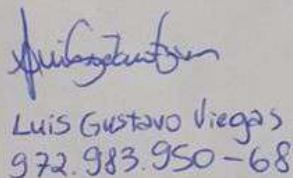 Luis Gustavo Viegas
972.983.950-68